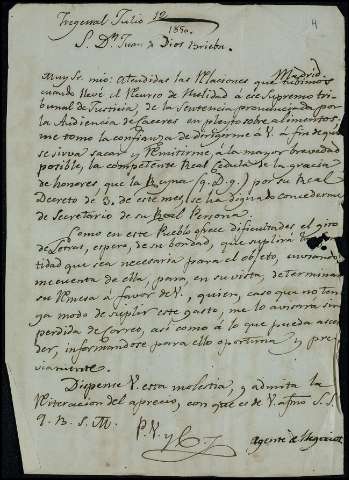 Fregenal Julio 12
1850.
4
S. Dn. Juan de Dios Brieba.
Madrid
Muy Sr. mio: Atendidas las relaciones que tubimos
cuando llevé el recurso de nulidad á ese Supremo tri-
bunal de Justicia, de la Sentencia pronunciada por
la Audiencia de Caceres en pleyto sobre alimentos,
me tomo la confianza de dirigirme á V. á fin de que
se sirva sacar y remitirme á la mayor brevedad
posible, la competente Real Cedula de la gracia
de honores, que la Reyna (q. D. g.) por su Real
Decreto de 3, de este mes, se ha dignado concederme
de Secretario de su Real Persona.
Como en este Pueblo ofrece dificultades el giro
de Letras, espero, de su bondad, que suplirá la can-
tidad que sea necesaria para el objeto, enviando-
me cuenta de ella, para, en su vista, determinar
su remesa á favor de V., quien, caso que no ten-
ga modo de suplir este gasto, me lo avisará sin
perdida de Correo, así como á lo que pueda ascen-
der, informandose para ello oportuna y pre-
viamente.
Dispense V. esta molestia, y admita la
reiteracion del aprecio, con que es de V. afmo. S. S.
Q. B. S. M.
Agente de Negocios